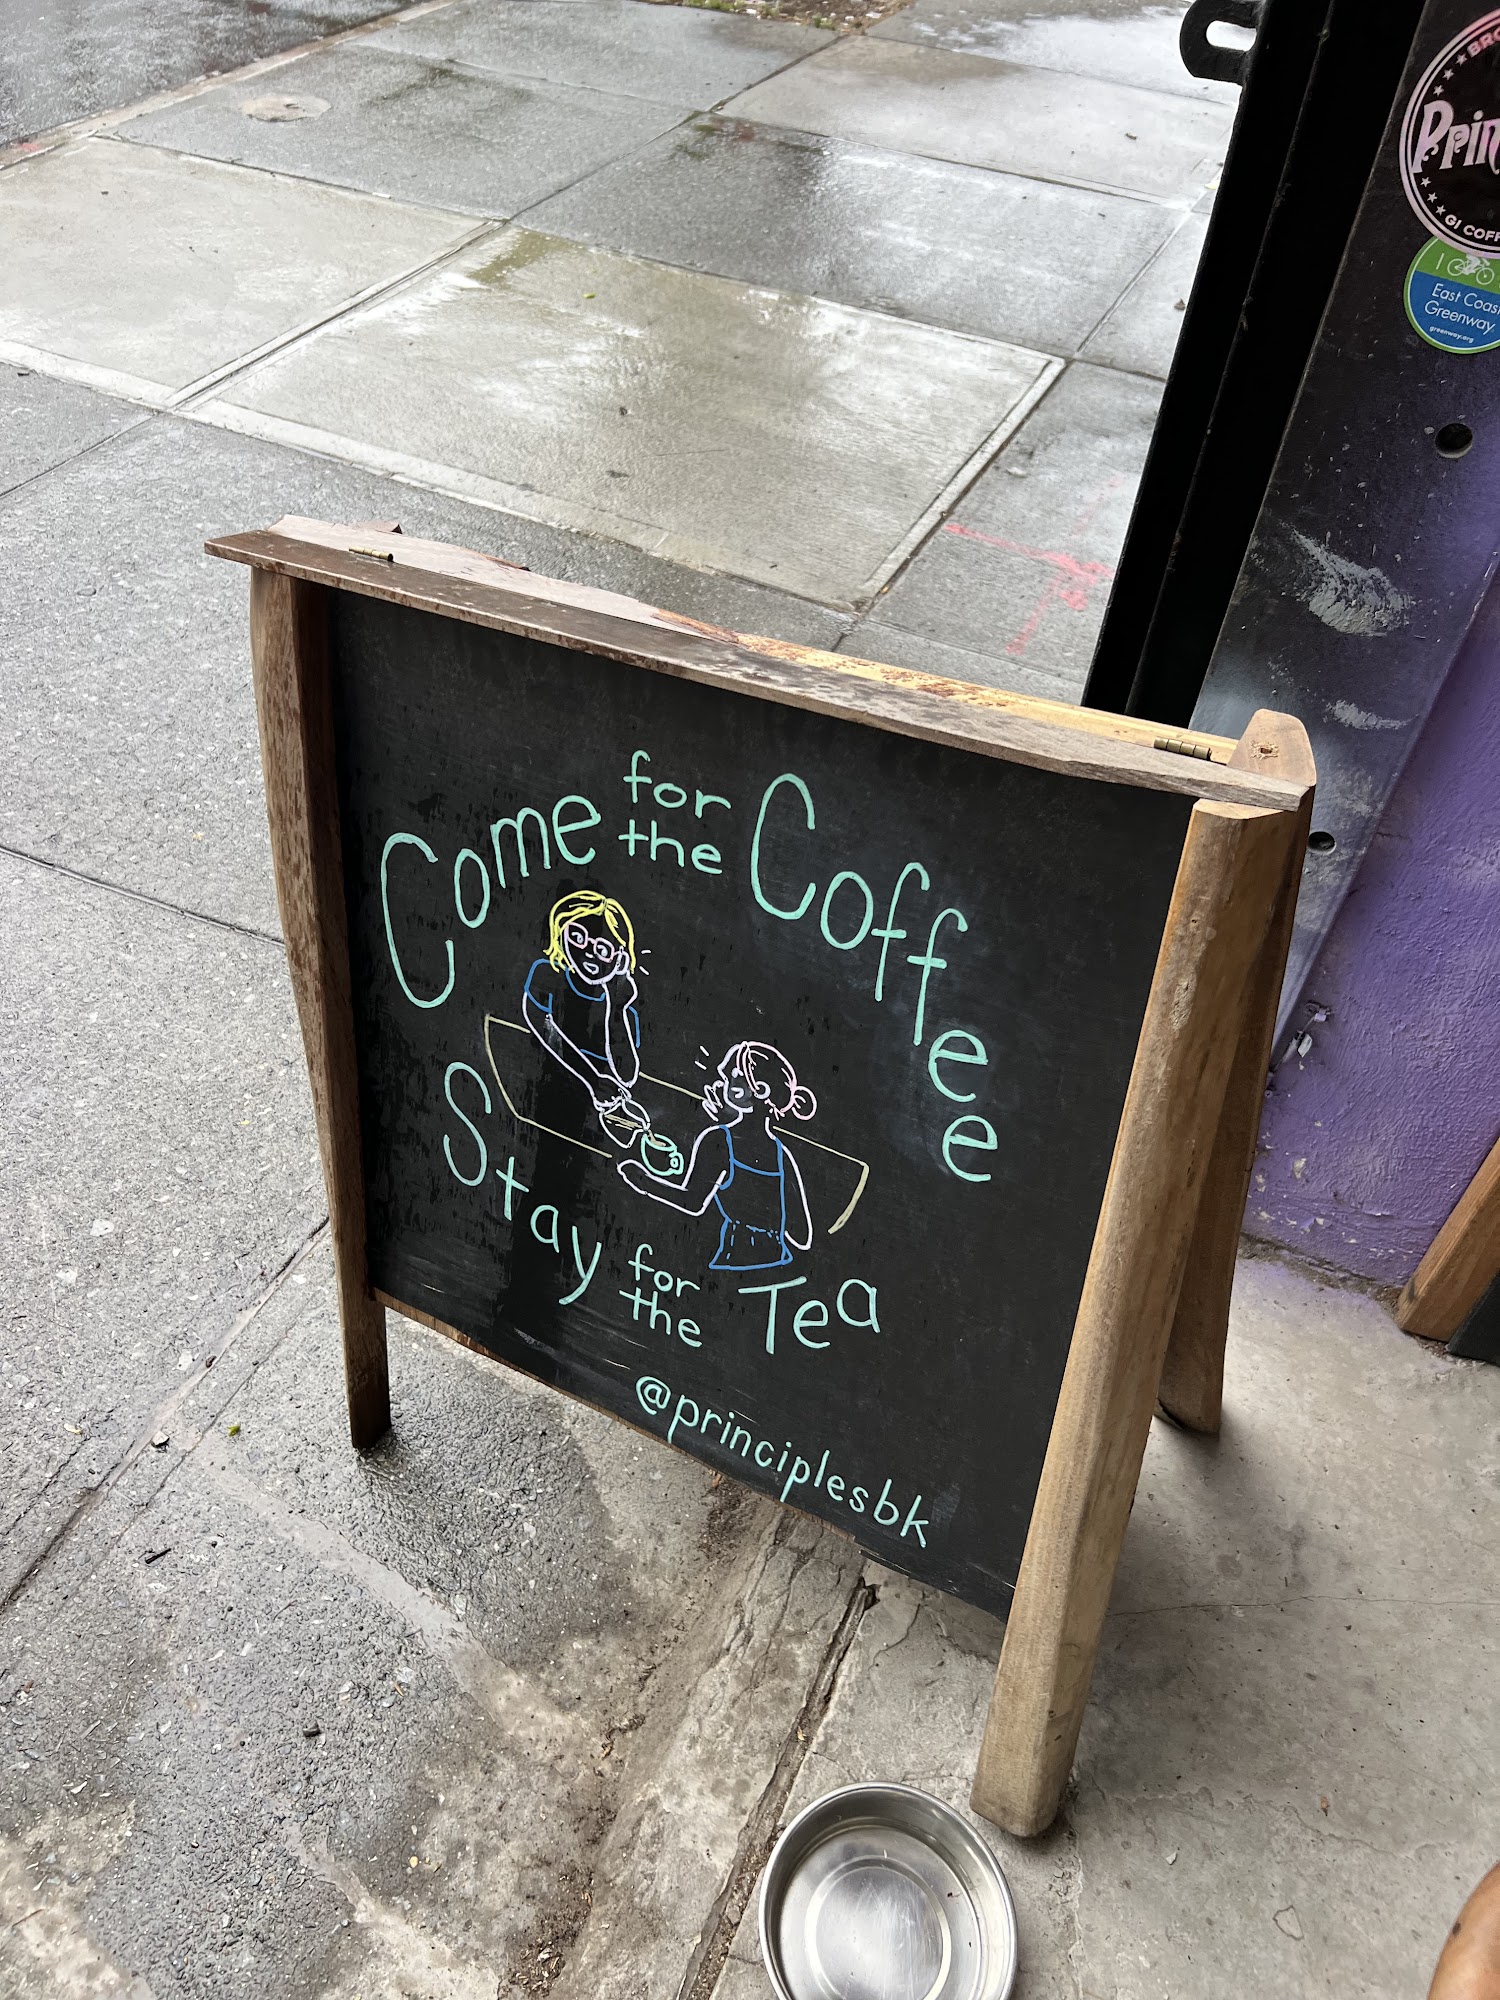 Come for the Coffee
Stay for the Tea
@principlesbk
GI COFF
I
East Coast
Greenway
greenway.org